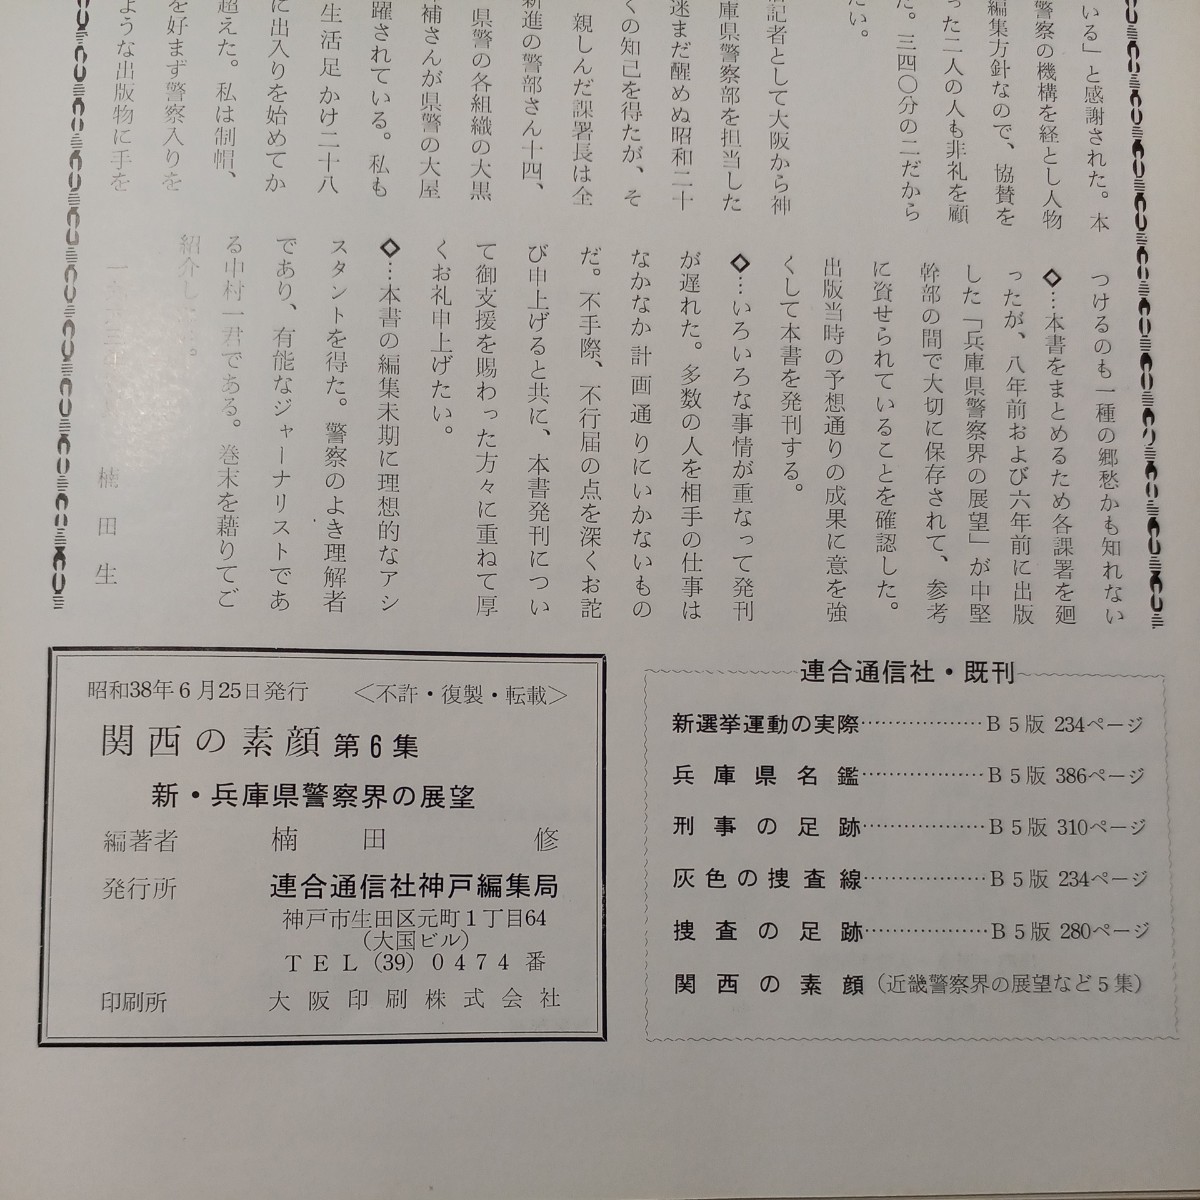 いる」と感謝された。本
警察の機構を経とし人物
編集方針なので、協賛を
った二人の人も非礼を顧
た。三四〇分の二だから
たい。
記者として大阪から神
庫県警察部を担当した
迷まだ醒めぬ昭和二十
くの知己を得たが、そ
親しんだ課署長は全
新進の警部さん十四、
県警の各組織の大黒
補さんが県警の大屋
躍されている。私も
生活足かけ二十八
に出入りを始めてか
超えた。私は制帽、
を好まず警察入りを
ような出版物に手を
つけるのも一種の郷愁かも知れない
◇…本書をまとめるため各課署を廻
ったが、八年前および六年前に出版
した「兵庫県警察界の展望」が中堅
幹部の間で大切に保存されて、参考
に資せられていることを確認した。
出版当時の予想通りの成果に意を強
くして本書を発刊する。
◇…いろいろな事情が重なって発刊
が遅れた。多数の人を相手の仕事は
なかなか計画通りにいかないもの
だ。不手際、不行届の点を深くお詫
び申上げると共に、本書発刊につい
て御支援を賜わった方々に重ねて厚
くお礼申上げたい。
◇…本書の編集末期に理想的なアシ
スタントを得た。警察のよき理解者
であり、有能なジャーナリストであ
る中村一君である。巻末を藉りてご
紹介し
楠田生
連合通信社・既刊
新選挙運動の実際………………B5版 234ページ
兵庫県名鑑………………B5版 386ページ
刑事の足跡………………B5版 310ページ
灰色の捜査線………………B5版 234ページ
捜査の足跡………………B5版 280ページ
関西の素顔（近畿警察界の展望など5集）
昭和38年6月25日発行　＜不許・復製・転載＞
関西の素顔 第6集
新・兵庫県警察界の展望
編著者　楠田　修
発行所　連合通信社神戸編集局
神戸市生田区元町1丁目64
（大国ビル）
TEL（39）0474番
印刷所　大阪印刷株式会社